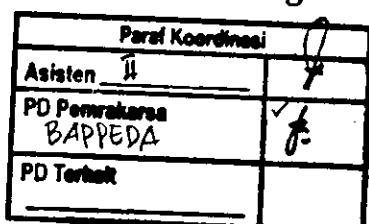 Paraf Koordinasi
Asisten II
PD Pemrakarsa
BAPPEDA
PD Terkait